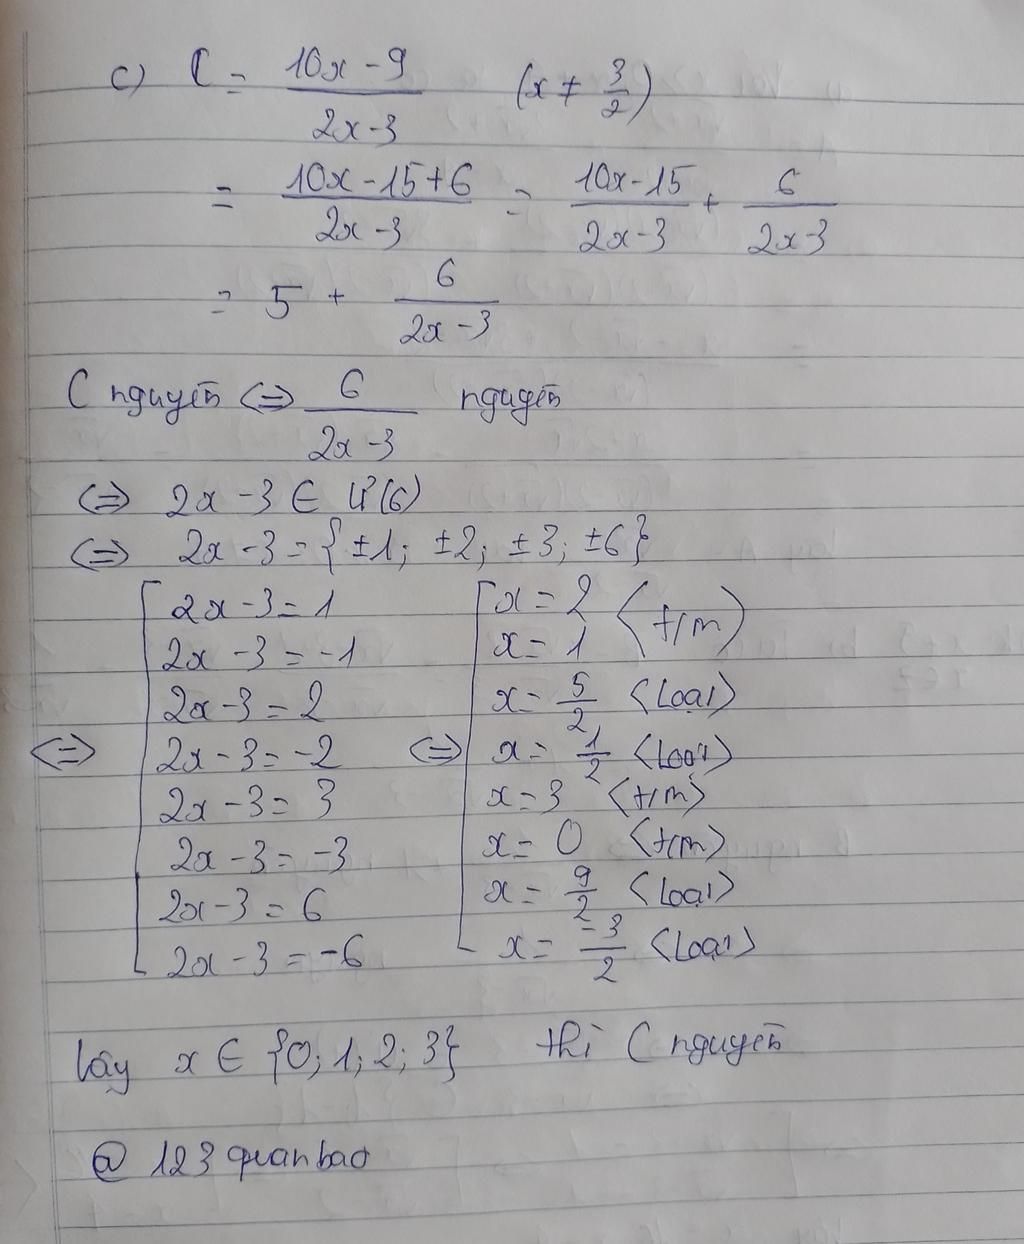 c) C = \frac{10x-9}{2x-3} (x ≠ \frac{3}{2})
= \frac{10x-15+6}{2x-3} = \frac{10x-15}{2x-3} + \frac{6}{2x-3}
= 5 + \frac{6}{2x-3}
C nguyên <=> \frac{6}{2x-3} nguyên
<=> 2x-3 ∈ Ư(6)
<=> 2x-3 = {±1; ±2; ±3; ±6}
2x-3=1
2x-3=-1
2x-3=2
<=> 2x-3=-2
2x-3=3
2x-3=-3
2x-3=6
2x-3=-6
x=2
x=1 (t/m)
x=\frac{5}{2} <Loại>
<=> x=\frac{1}{2} <Loại>
x=3 <t/m>
x=0 <t/m>
x=\frac{9}{2} <Loại>
x=\frac{-3}{2} <Loại>
Vậy x ∈ {0; 1; 2; 3} thì C nguyên
@ 123 quanbao